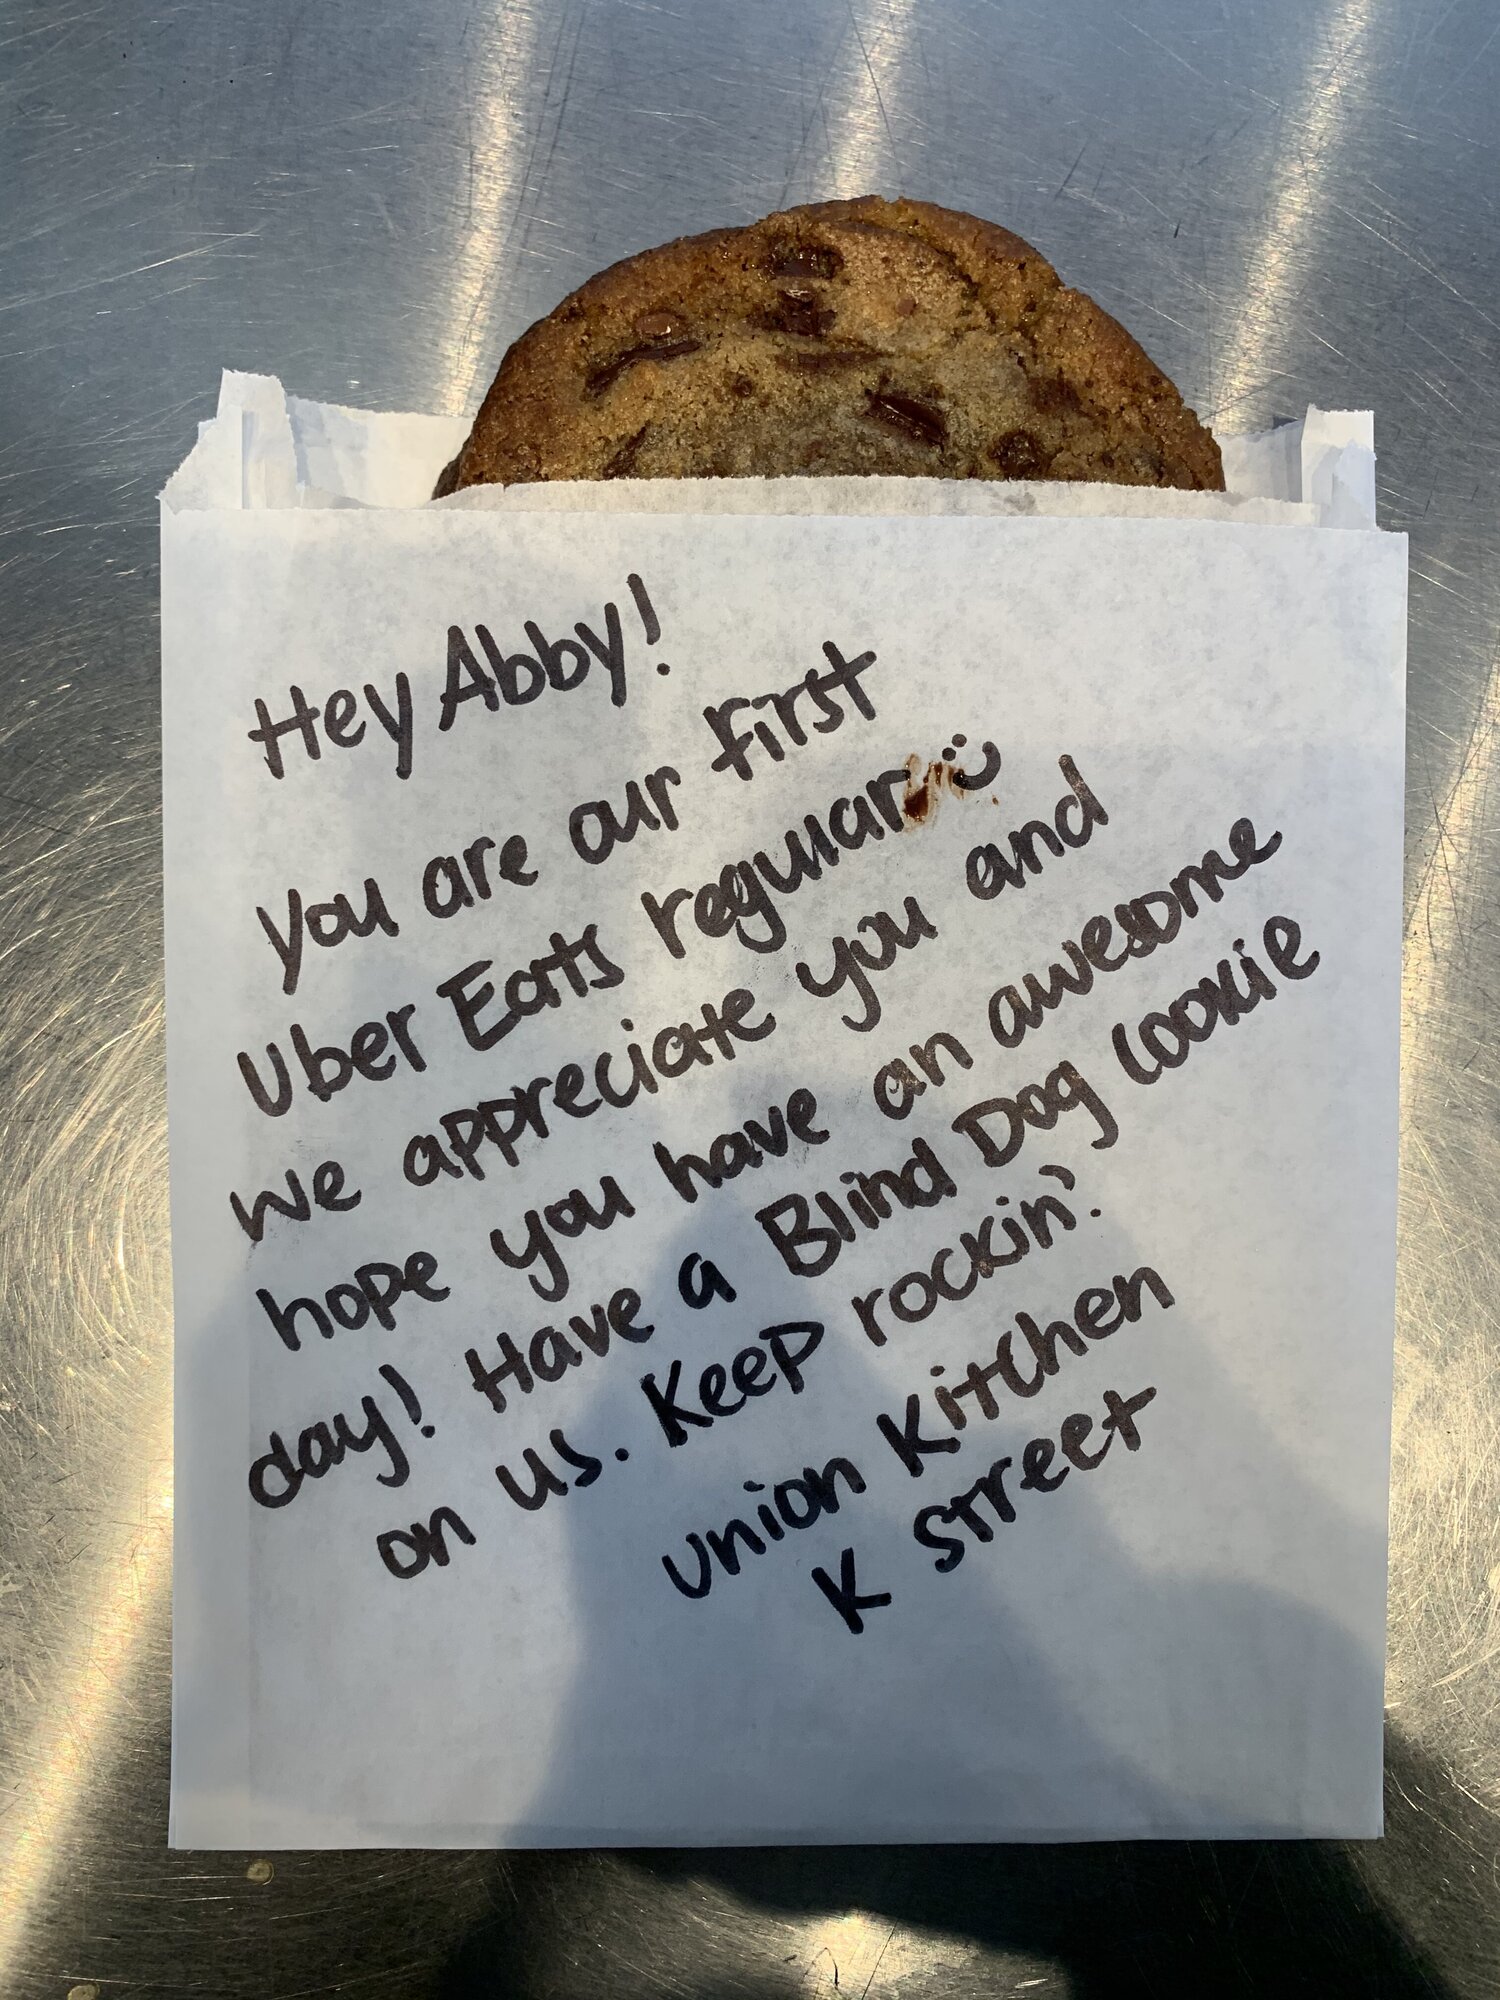 Hey Abby!
You are our first
Uber Eats regular
We appreciate you and
hope you have an awesome
day! Have a Blind Dog Cookie
on us. Keep rockin'.
Union Kitchen
K Street